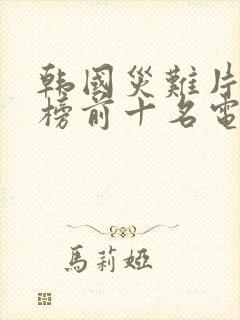 韩國災難片
榜前十名電
馬莉婭